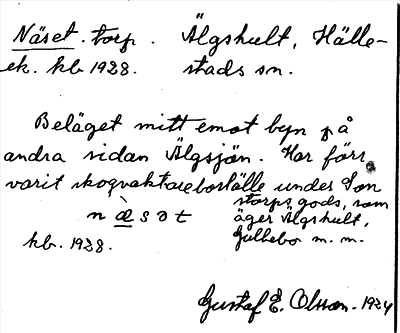 Näset. torp. Älgshult, Hälle-
ek. kb 1928. stads sn.
Beläget mitt emot byn på
andra sidan Älgsjön. Har förr
varit skogvaktareboställe under Son
storps gods, som
n æ̀ s ə t äger Älgshult,
kb. 1928. Gullebo m. m.
Gustaf E. Olsson - 1924